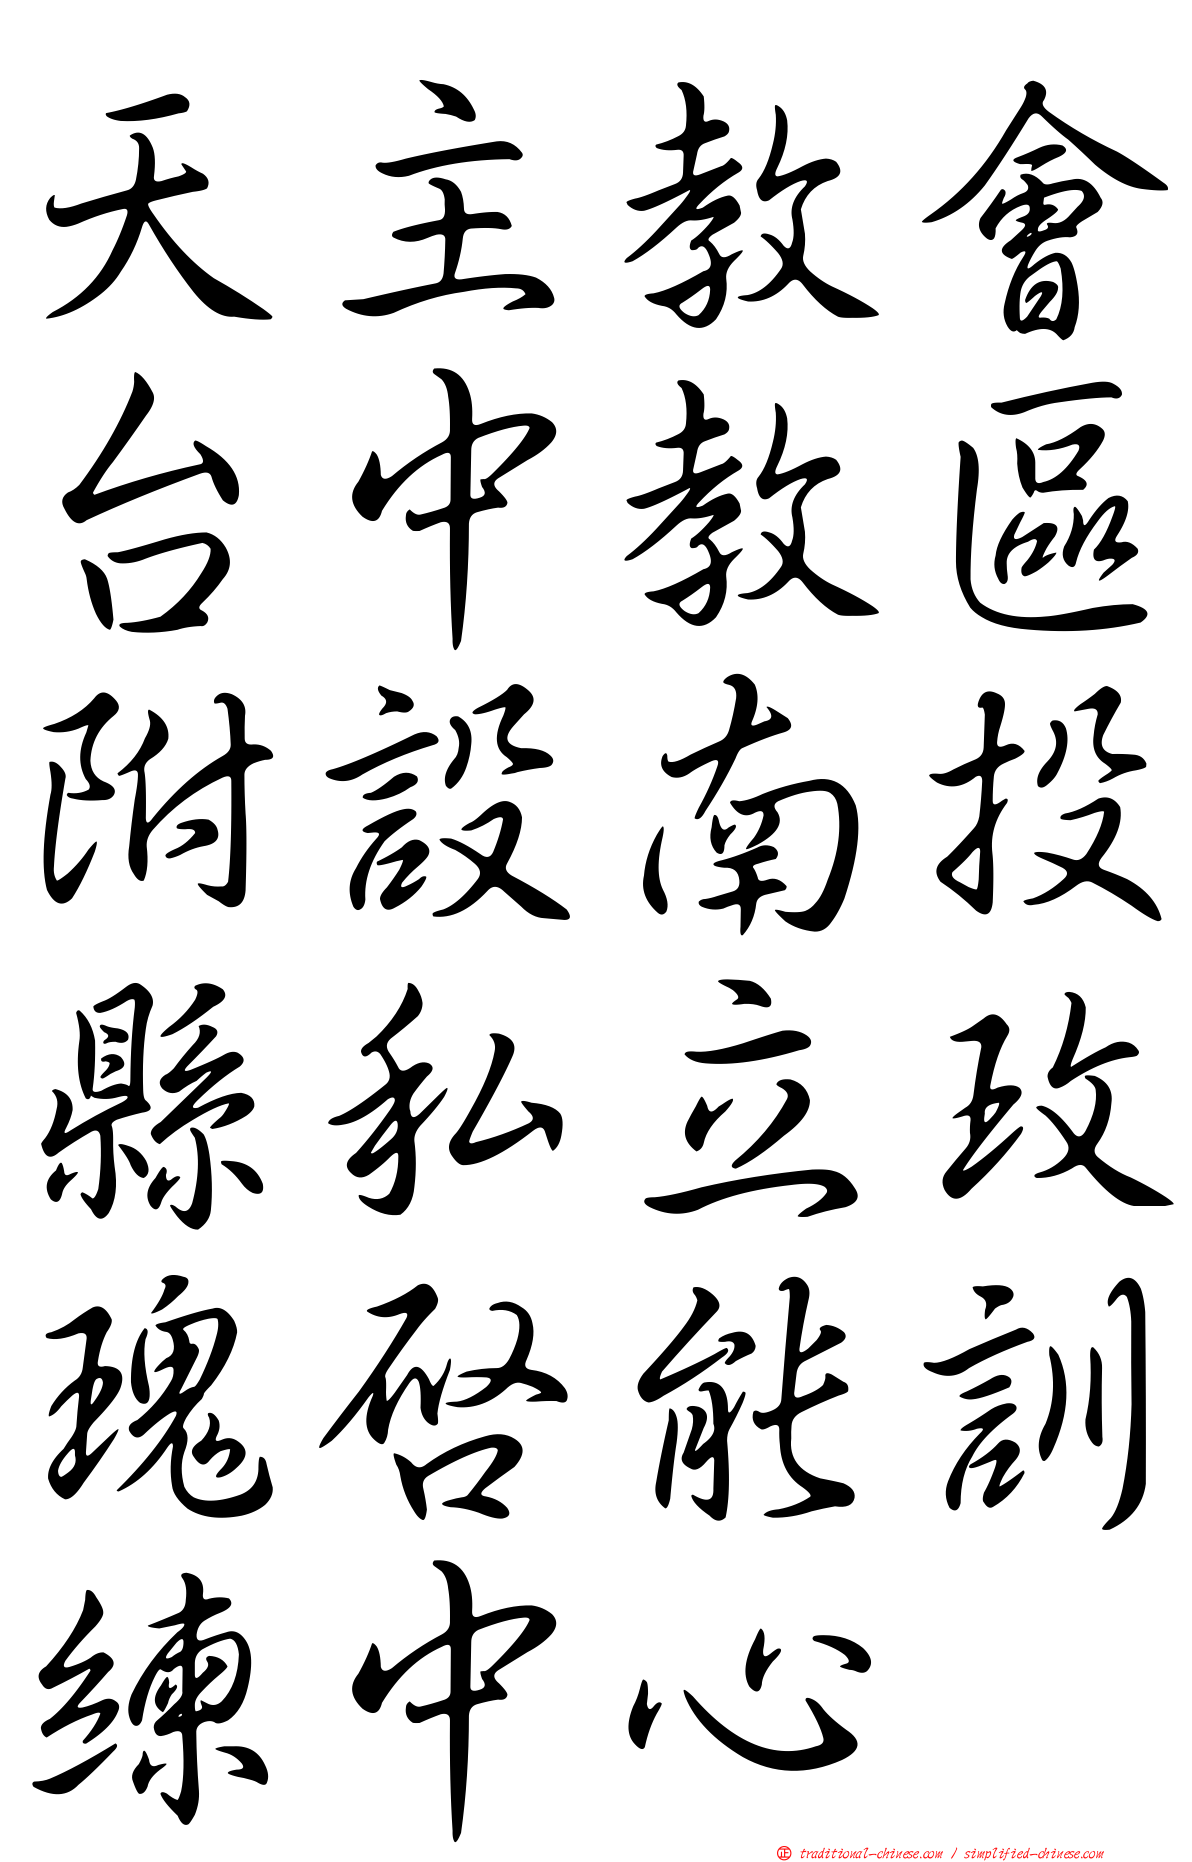 天主教會
台中教區
附設南投
縣私立玫
瑰啓能訓
練中心
㊣ traditional-chinese.com / simplified-chinese.com